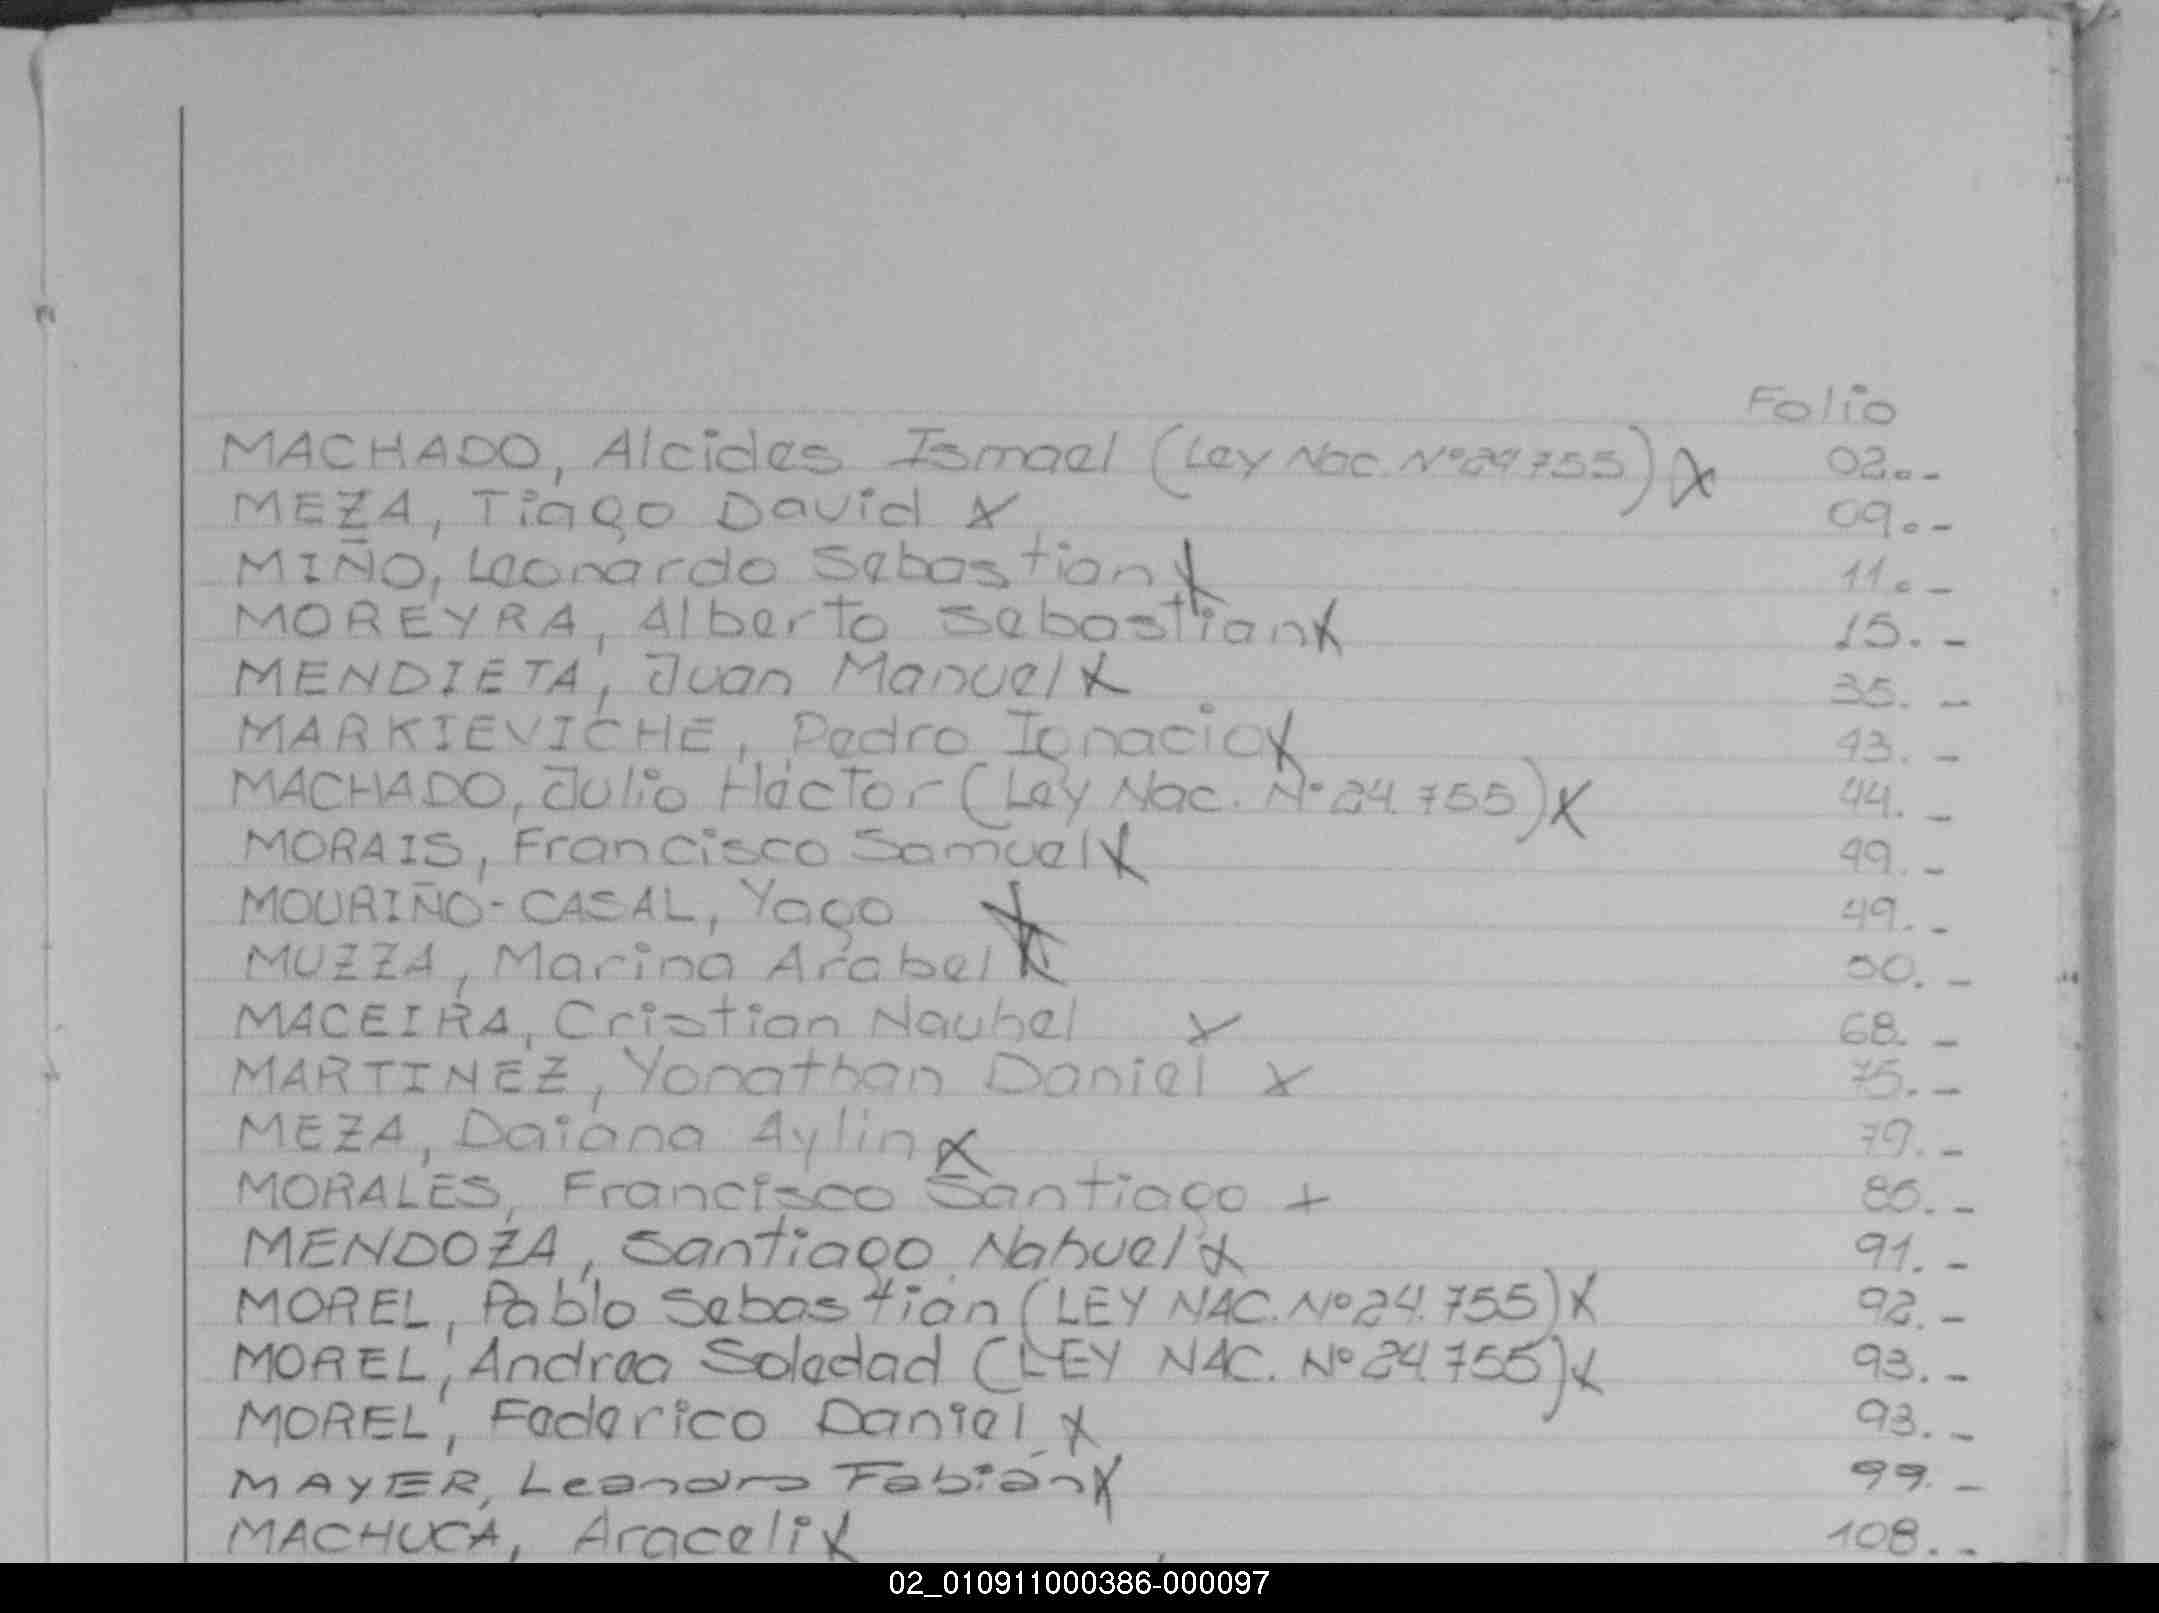 Folio
MACHADO, Alcides Ismael (Ley Nac. Nº 24755) X 02.-
MEZA, Tiago David X 09.-
MIÑO, Leonardo Sebastian X 11.-
MOREYRA, Alberto Sebastian X 15.-
MENDIETA, Juan Manuel X 35.-
MARKIEVICHE, Pedro Ignacio X 43.-
MACHADO, Julio Héctor (Ley Nac. Nº 24.755) X 44.-
MORAIS, Francisco Samuel X 49.-
MOURIÑO-CASAL, Yago X 49.-
MUZZA, Marina Arabel X 50.-
MACEIRA, Cristian Nauhel X 68.-
MARTINEZ, Yonathan Daniel X 75.-
MEZA, Daiana Aylin X 79.-
MORALES, Francisco Santiago + 85.-
MENDOZA, Santiago Nahuel X 91.-
MOREL, Pablo Sebastián (LEY NAC. Nº 24.755) X 92.-
MOREL, Andrea Soledad (LEY NAC. Nº 24755) X 93.-
MOREL, Federico Daniel X 93.-
MAYER, Leandro Fabián X 99.-
MACHUCA, Araceli X 108.-
02_010911000386-000097